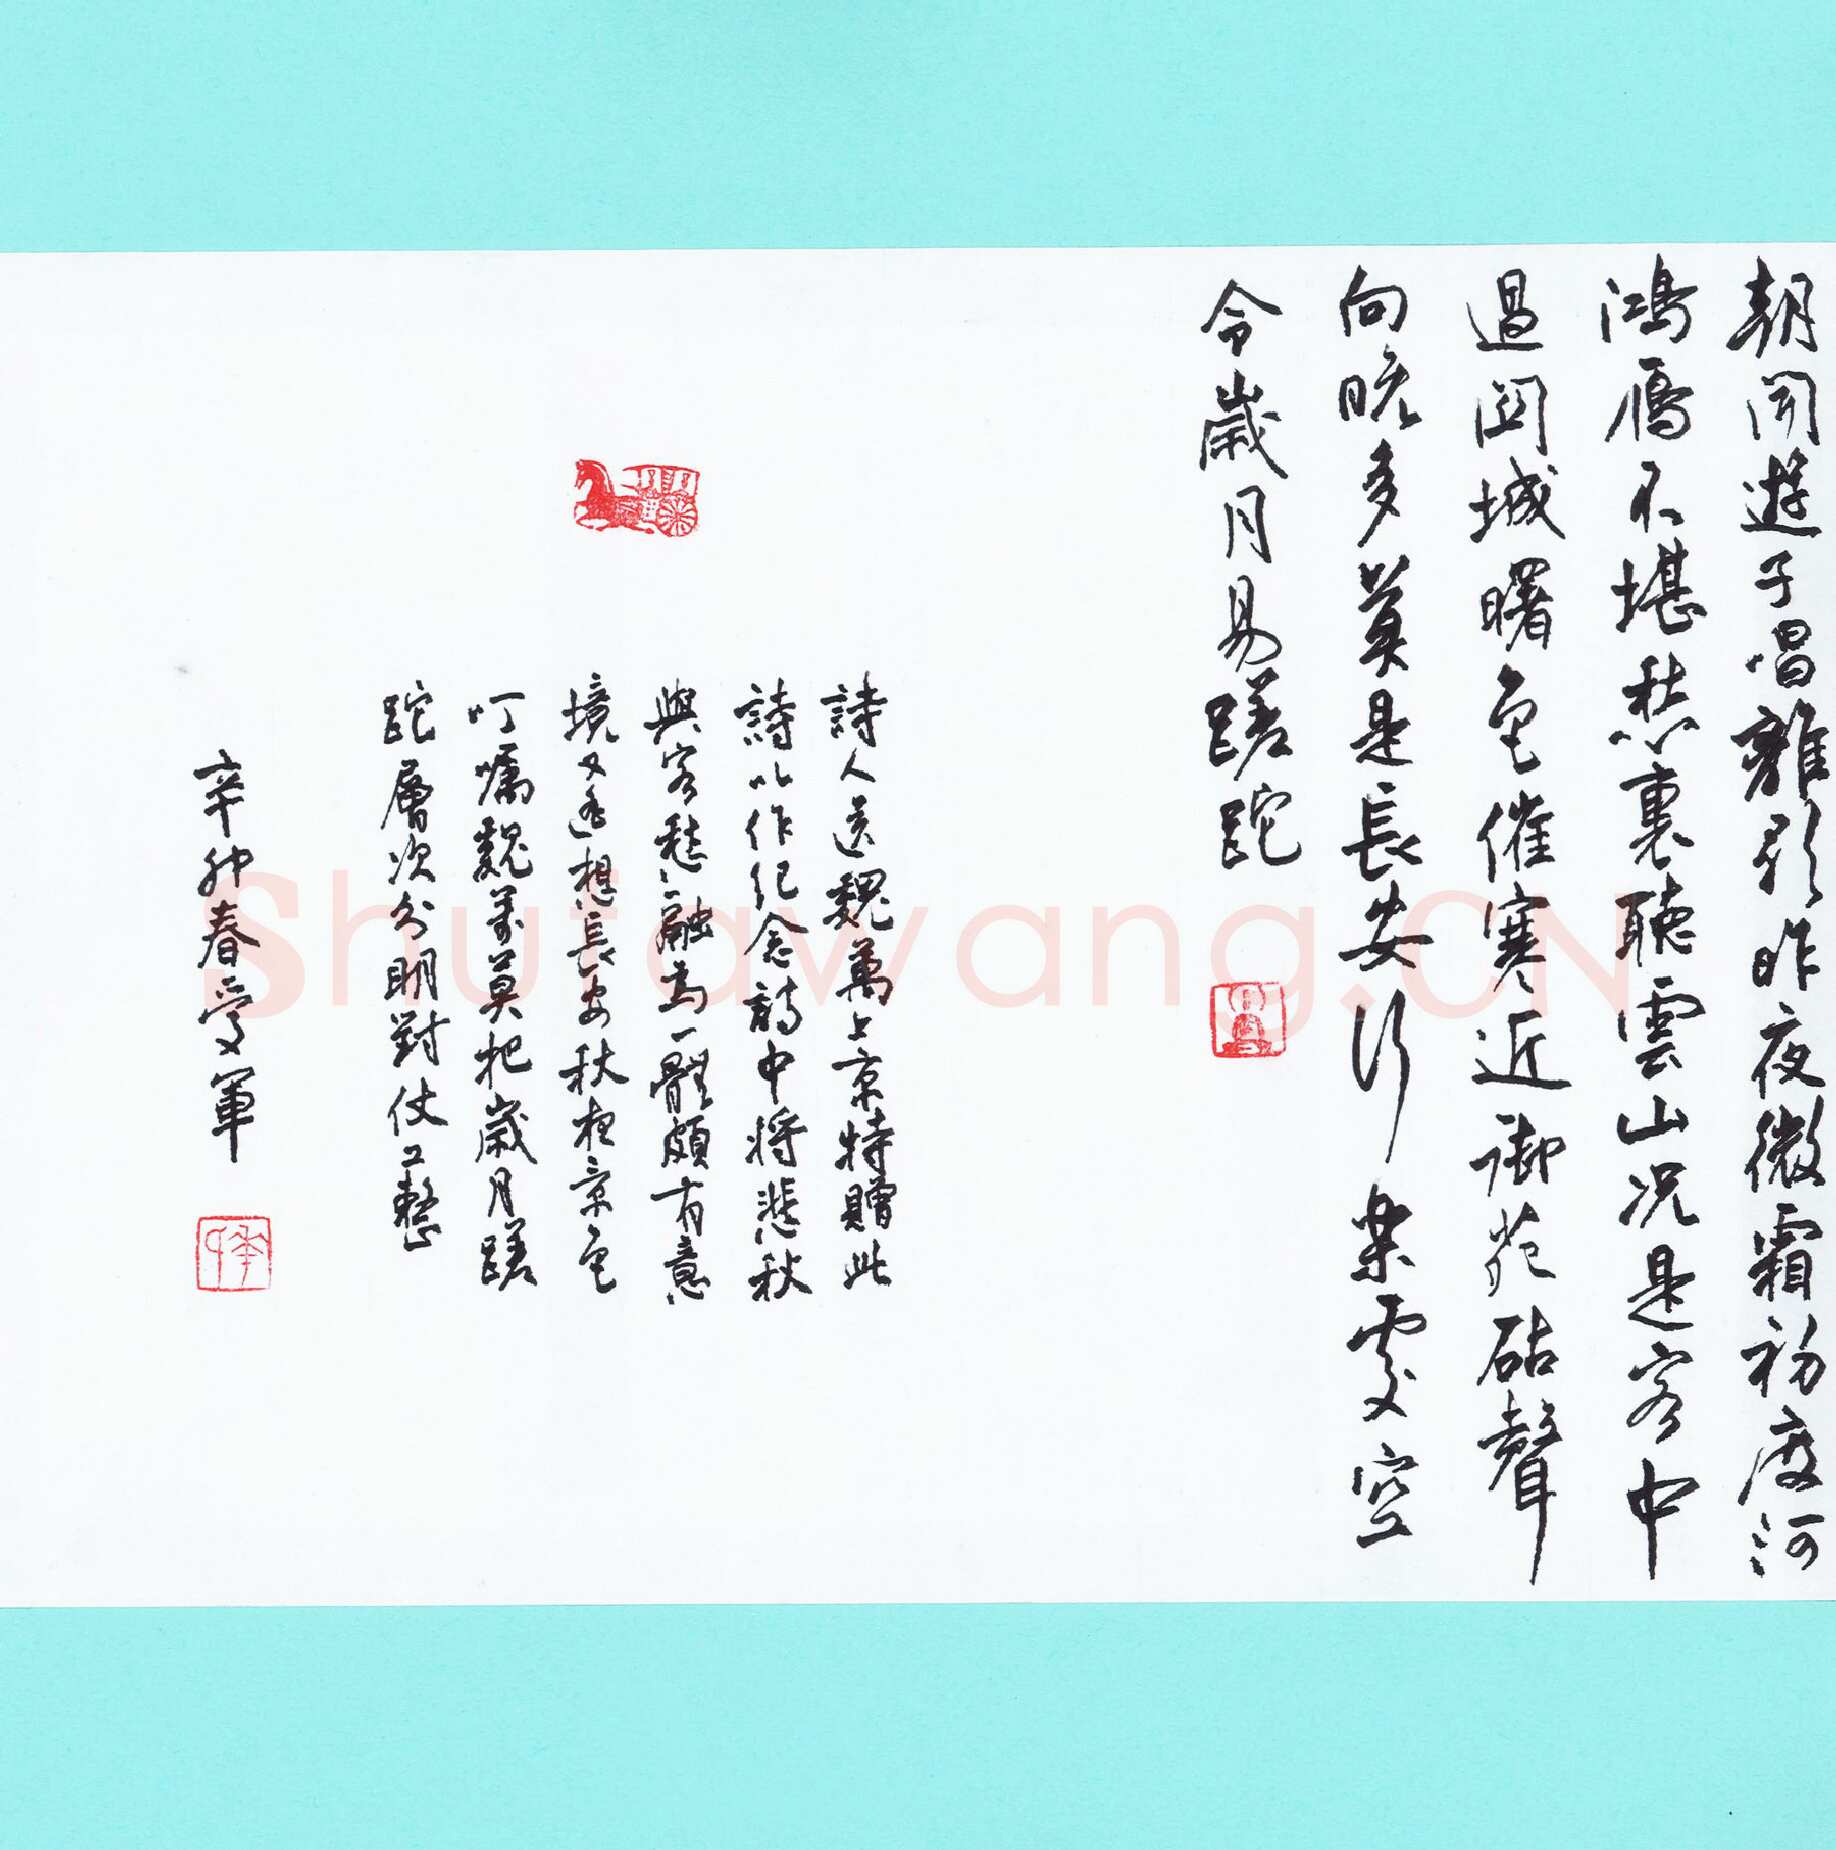 朝聞遊子唱離歌昨夜微霜初度河
鴻雁不堪愁裏聽雲山况是客中
過関城曙色催寒近御苑砧聲
向晚多莫是長安行樂處空
令歲月易蹉跎
詩人送魏萬上京特贈此
詩以作紀念詩中將悲秋
與客愁融為一體頗有意
境又遥想長安秋夜景色
叮囑魏萬莫把歲月蹉
跎層次分明對仗工整
辛卯春受軍
Shufawang.CN